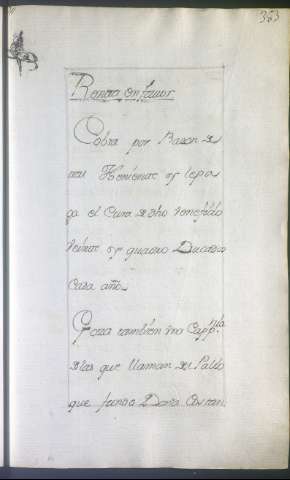 353
Renta en fauor
Cobra por Razon de
su Heniente y le pa
ga el Cura de dho Benefizio
Veinte y quatro Ducados
Cada año.
Goza tambien una Capp.lla
de las que llaman del Saldo
que fundo Dona Costan